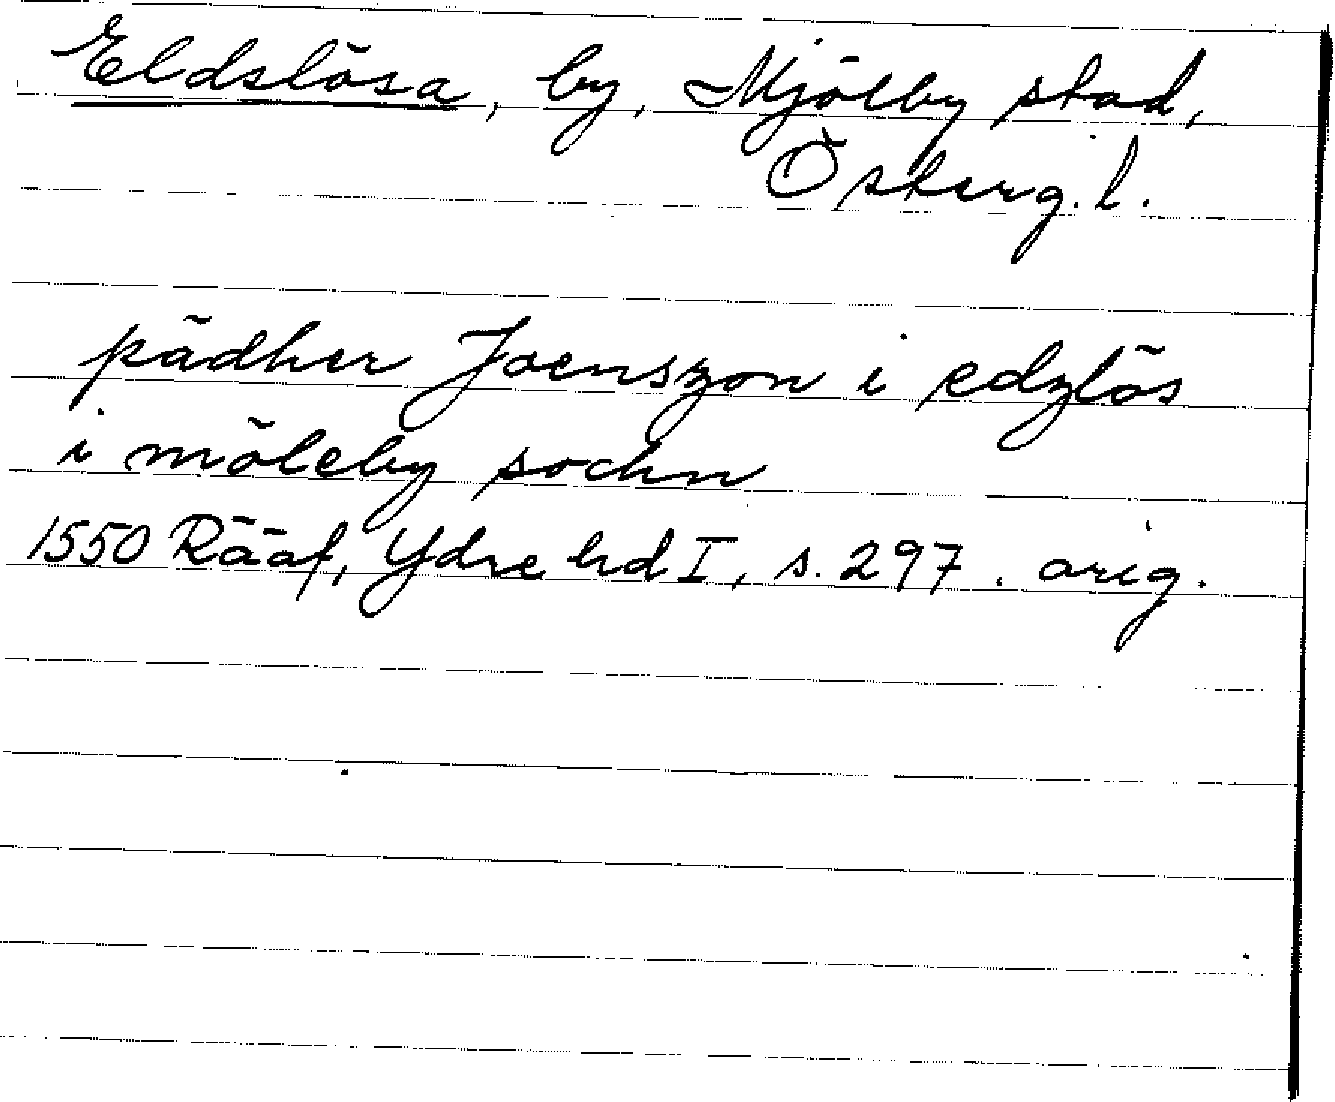 Eldslösa, by, Mjölby stad,
Österg. l.
pädher Joenszon i edzlös
i möleby sochn
1550 Rääf, Ydre hd I, s. 297. orig.